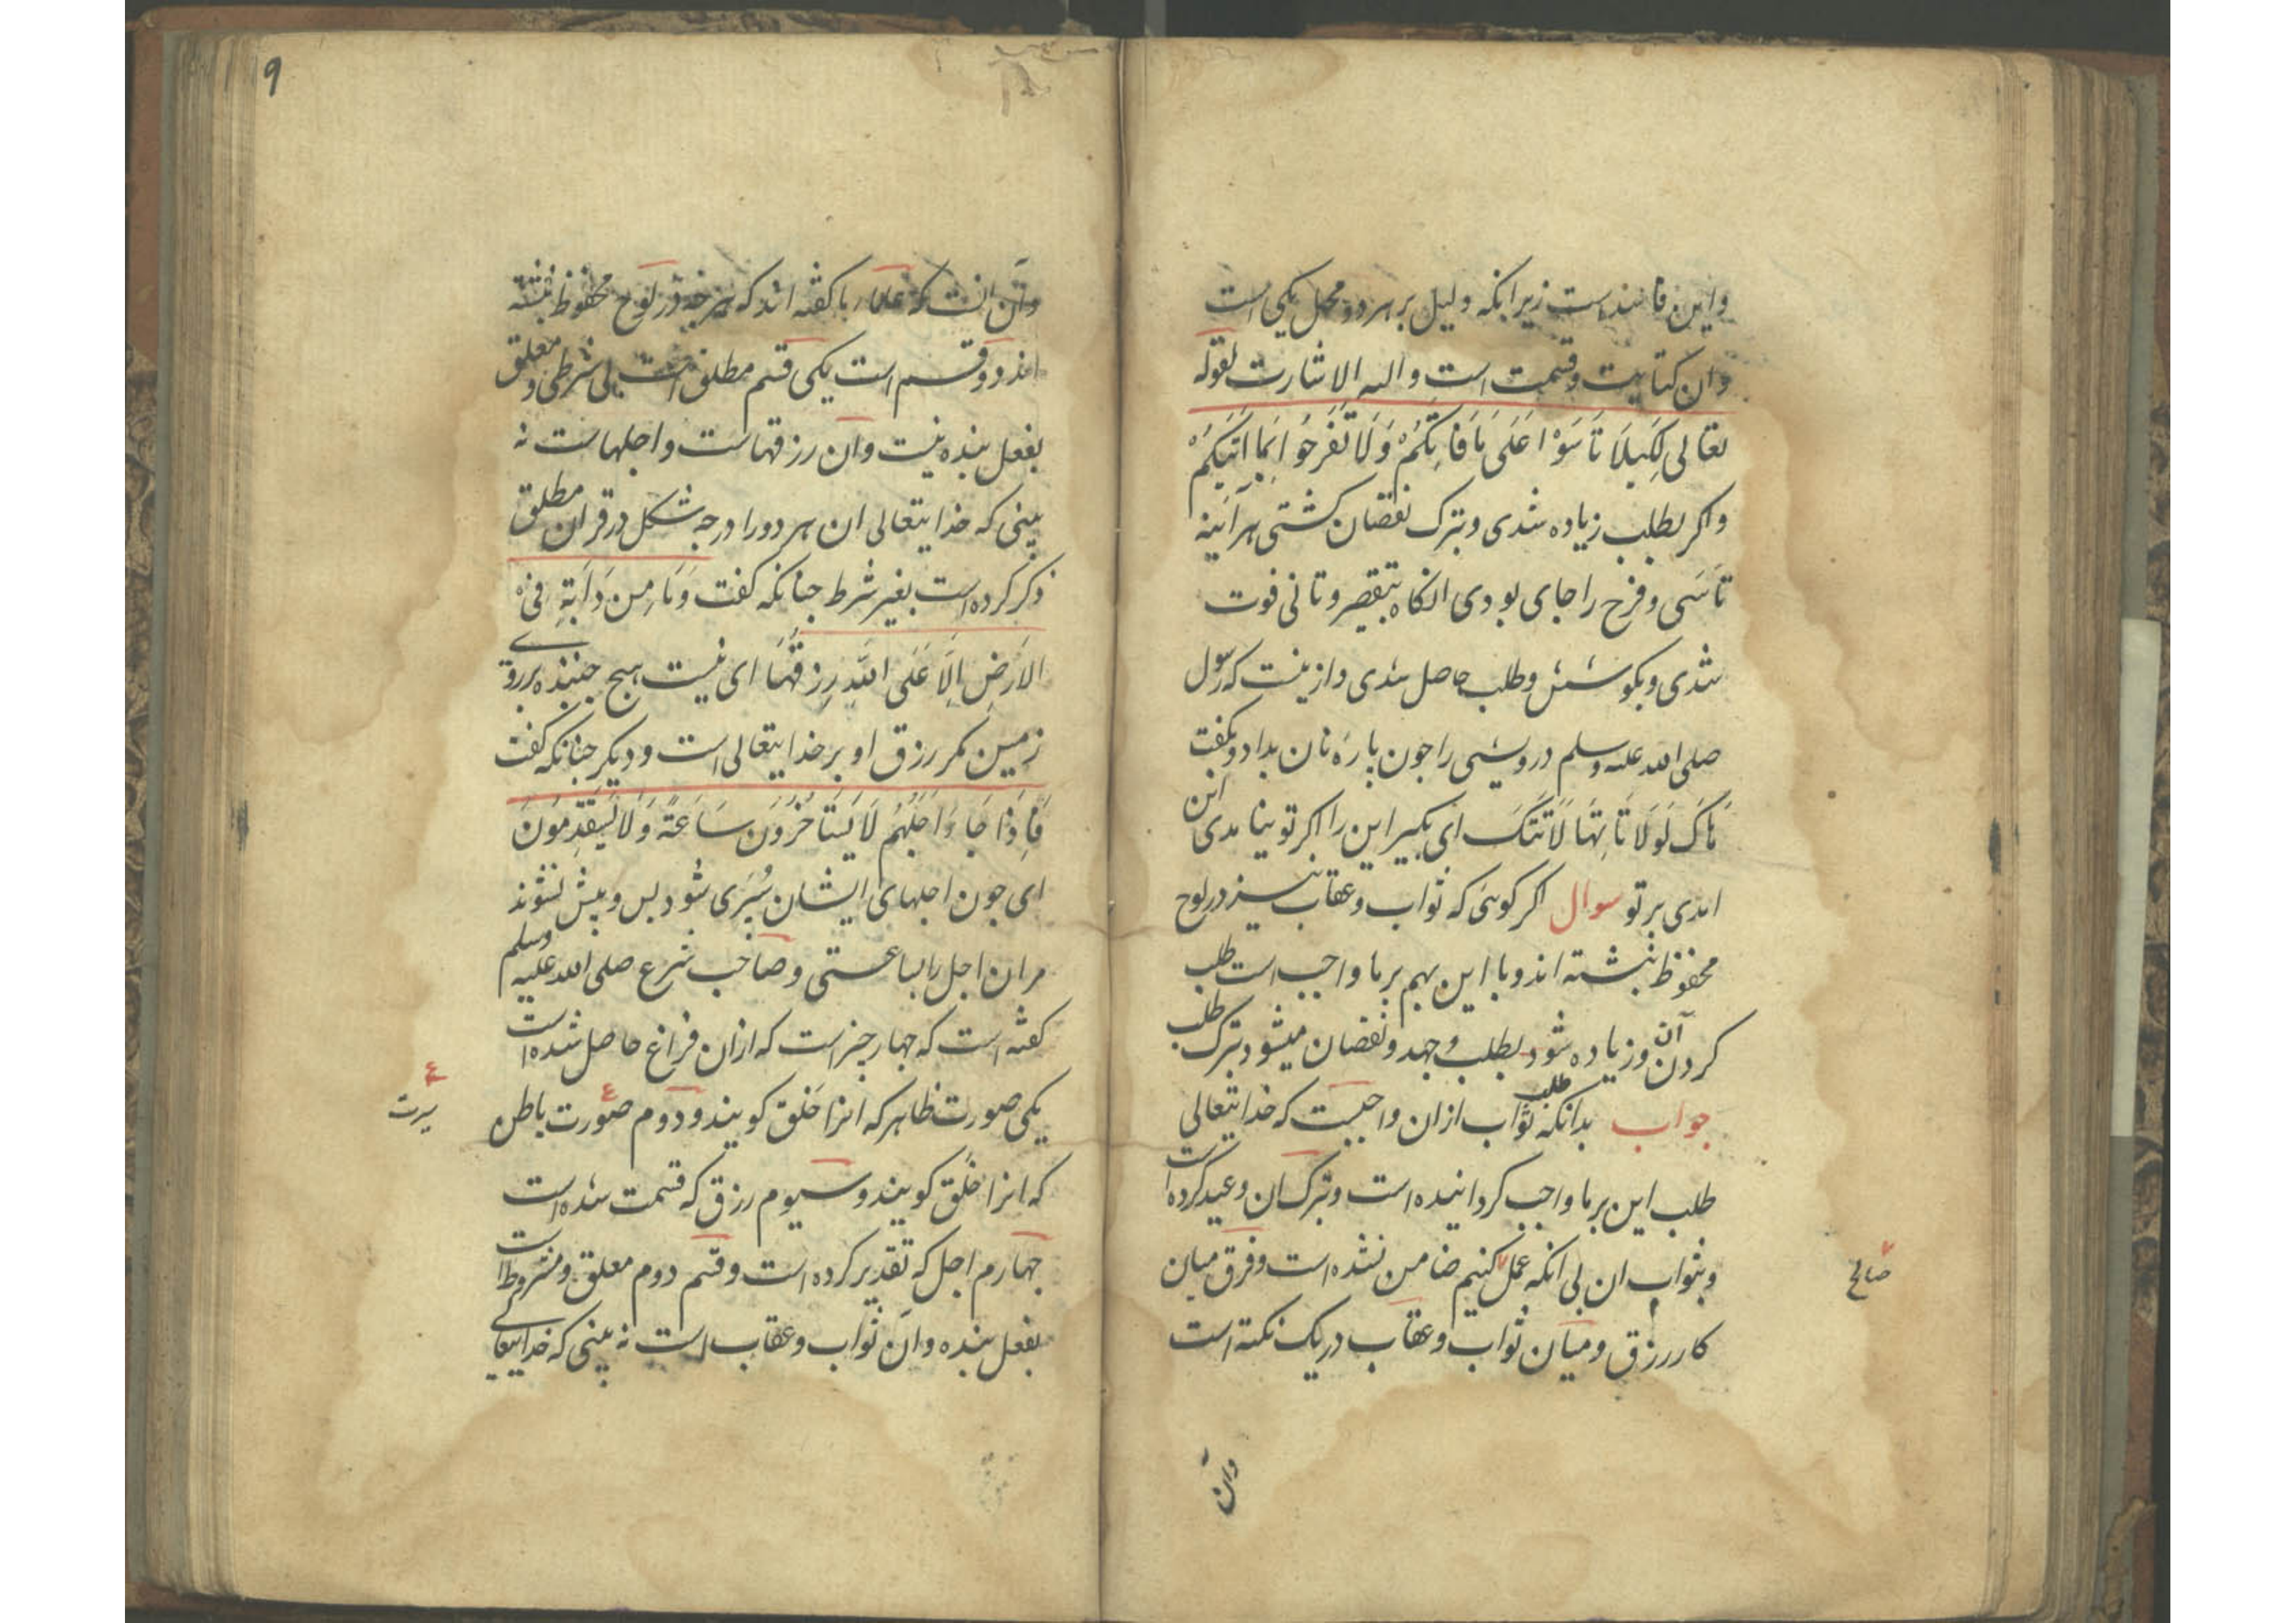 واین فاسدست زیرا که دلیل بر هر دو محل یکی است
وان کتابیت وقسمت است والیه الاشارت لقوله
تعالی لِکَیلَا تَاسَوْا عَلَی مَا فَاتَکُمْ وَلَا تَفْرَحُوا بِمَا اَتیکُمْ
واکر بطلب زیاده شدی وبترک نقصان کشتی هر آینه
تاسَی وفرح را جای بودی انکاه بتقصیر وتانی فوت
شدی وبکوشش وطلب حاصل شدی وازینست که رسول
صلی الله علیه وسلم درویشی را جون پارۀ نان بداد وبکفت
هَاکَ لَوْلَا تَاتِهَا لَاَتَتکَ ای بکیر این را اکر تو نیامدی این
امدی بر تو سوال اکر کویی که ثواب وعقاب نیز در لوح
محفوظ نبشته اند وبا این بهم بر ما واجب است طلب
کردن آن وزیاده شود بطلب وجهد ونقصان میشود بترک طلب
جواب بدانکه طلب ثواب ازان واجبست که خدایتعالی
طلب این بر ما واجب کردانیده است وبترک ان وعید کرده است
وبثواب ان بی انکه عمل کنیم ضامن نشده است وفرق میان
صالح
کار رزق ومیان ثواب وعقاب در یک نکته است
وآن
۹
وآن انست که علما ما کفته اند که هر جه در لوح محفوظ نبشته
اند دو قسم است یکی قسم مطلق است بی شرطی ومعلق
بفعل بنده نیست وآن رزقهاست واجلهاست نه
بینی که خدایتعالی ان هر دو را درجه شکل در قران مطلق
ذکر کرده است بغیر شرط جنانکه کفت وَمَا مِن دَابَةٍ فِی
الاَرضِ اِلَّا عَلَی اللهِ رِزقُهَا ای نیست هیج جنبنده بر روی
زمین مکر رزق او بر خدایتعالی است ودیکر جنانکه کفت
فَاِذَا جَاءَ اَجَلُهُم لَا یَستَاخُرُونَ سَاعَةً وَلَا یَستَقدِمُونَ
ای جون اجلهای ایشان سُپَری شود پس وپیش نشوند
مران اجل را بساعتی وصاحب شرع صلی الله علیه وسلم
کفته است که جهار جیز است که ازان فراغ حاصل شده است
یکی صورت ظاهر که انرا خَلق کویند ودوم صورت باطن
سیرت
که انرا خُلق کویند وسیوم رزق که قسمت شده است
جهارم اجل که تقدیر کرده است وقسم دوم معلق ومشروط است
بفعل بنده وآن ثواب وعقاب است نه بینی که خدایتعالی